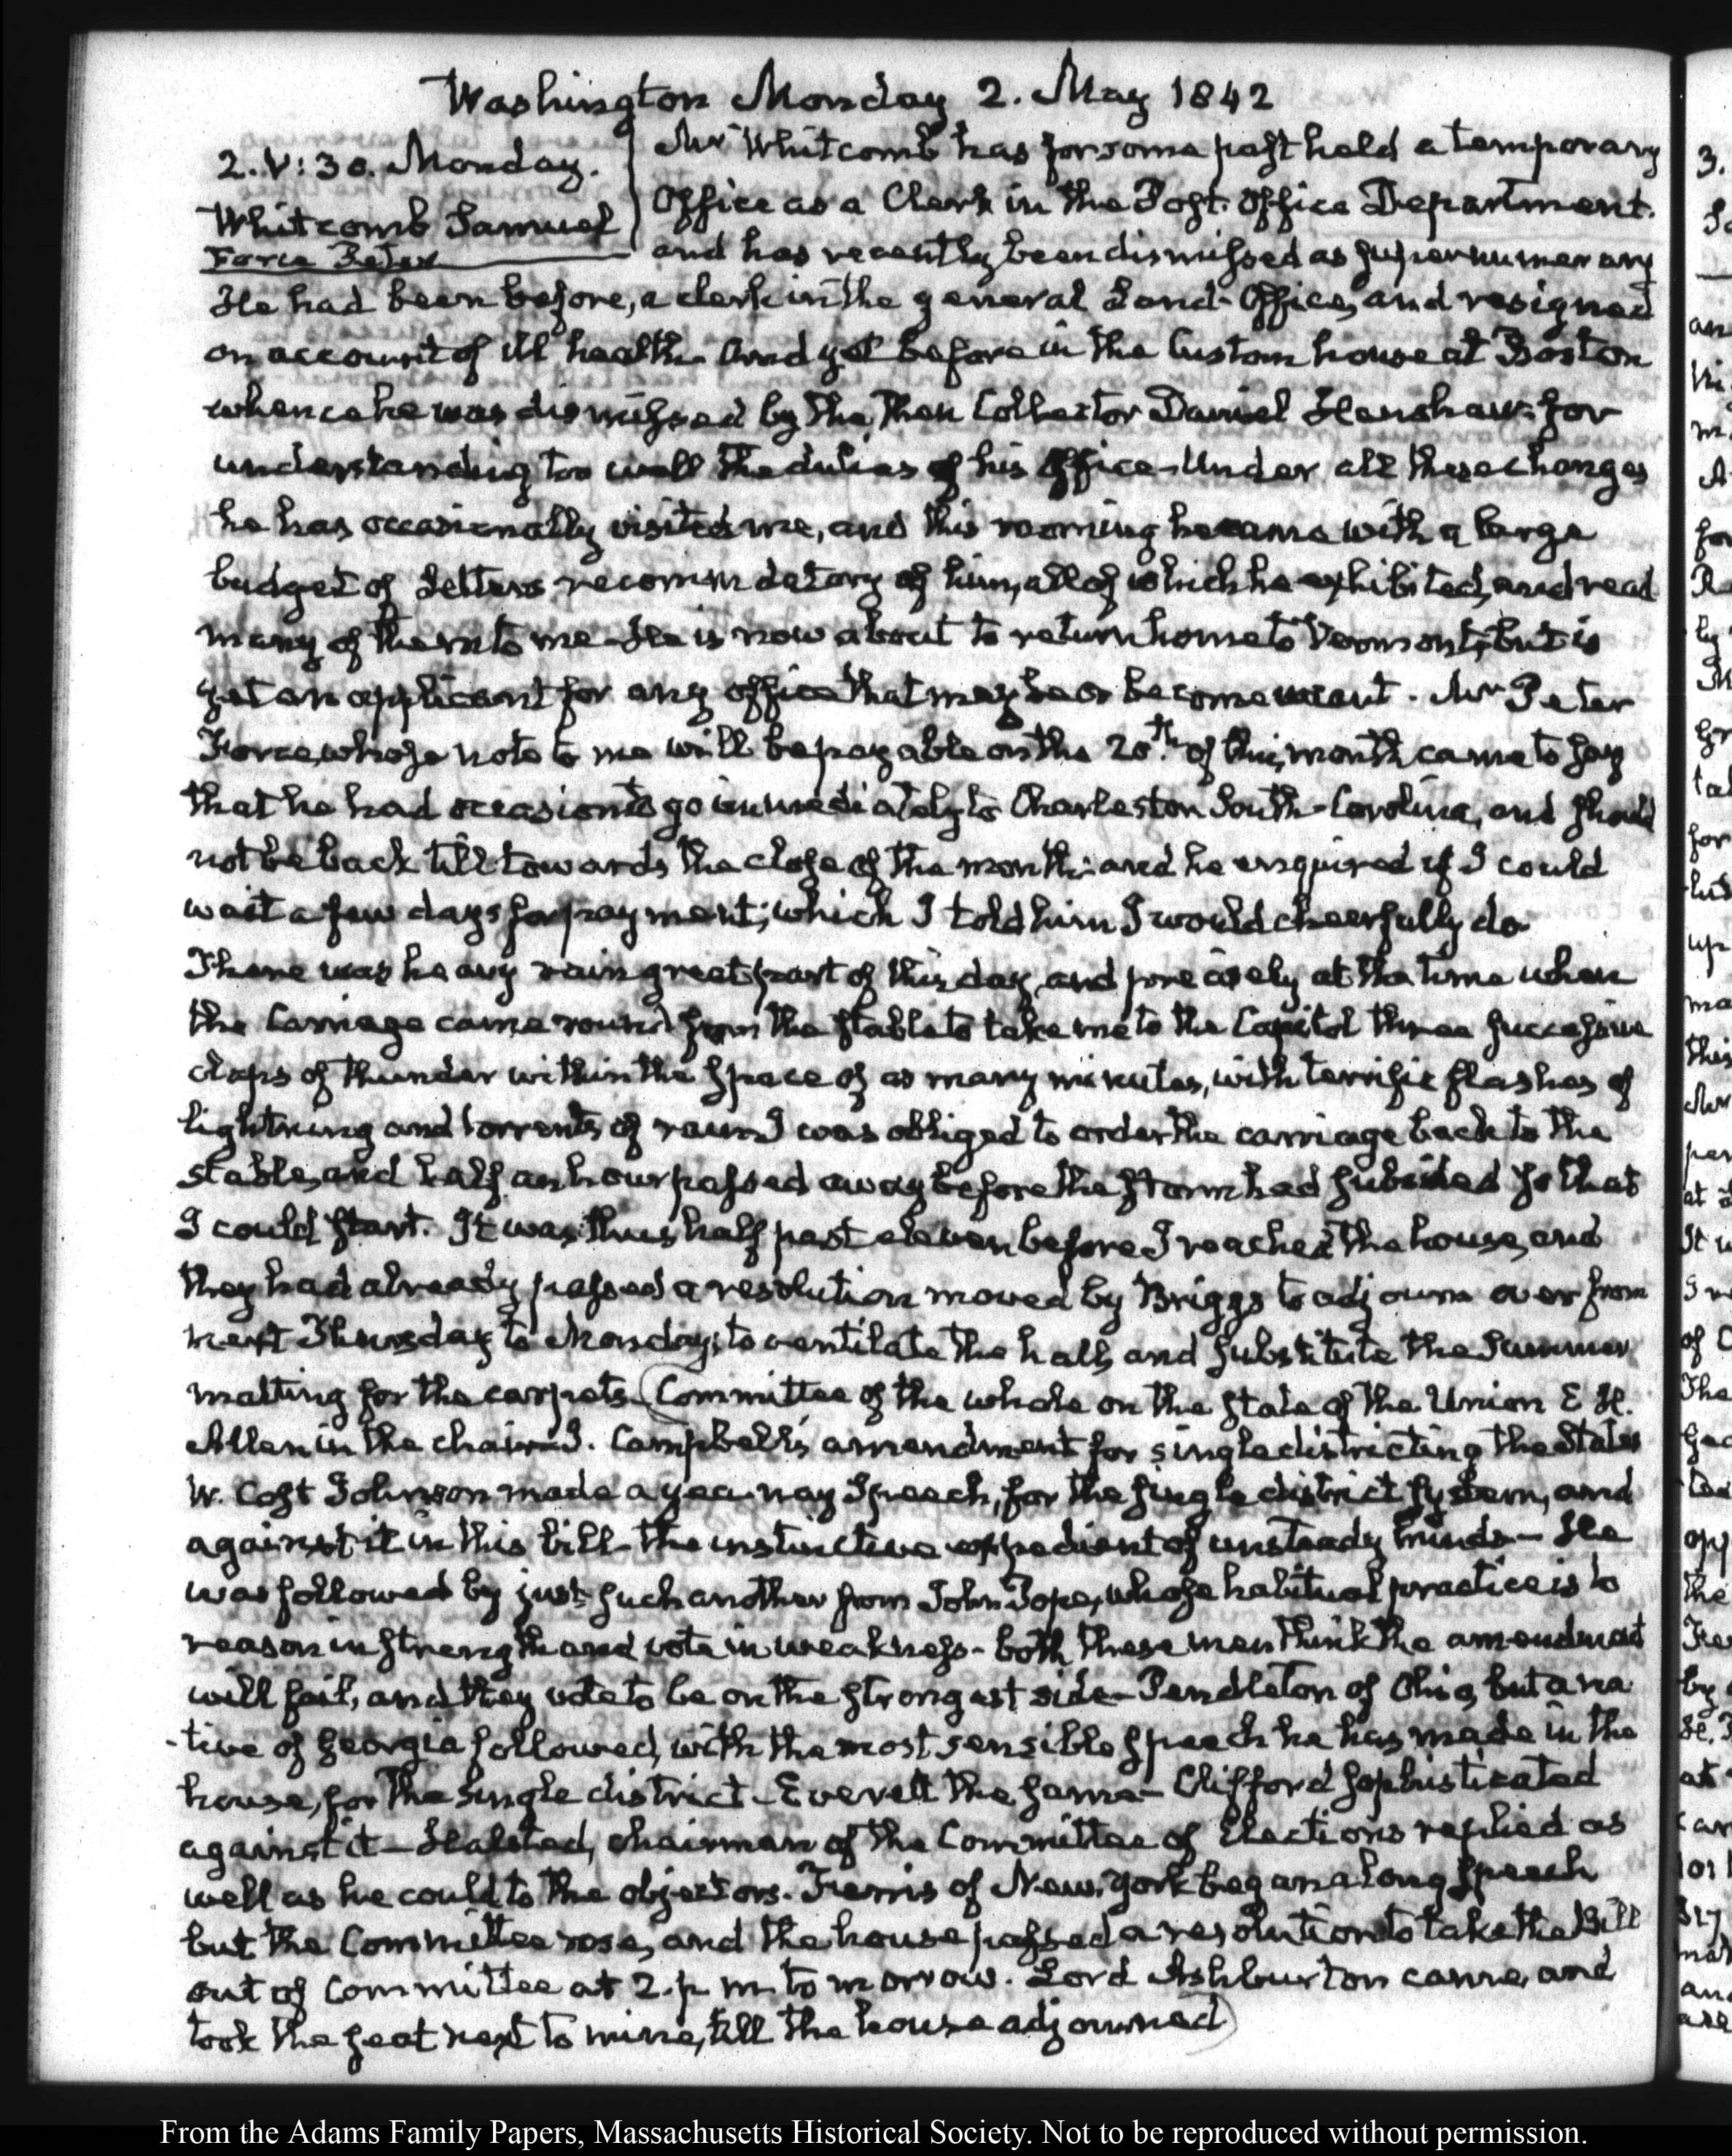 Washington Monday 2. May 1842
2. V: 30. Monday.
Whitcomb Samuel
Force Peter
Mr Whitcomb has for some past held a temporary
Office as a Clerk in the Post-Office Department.
and has recently been dismissed as supernumerary
He had been before, a clerk in the general Land-Office, and resigned
on account of ill health. And yet before in the Custom house at Boston
whence he was dismissed by the then Collector Daniel Henshaw for
understanding too well the duties of his Office- Under all these changes
he has occasionally visited me, and this morning he came with a large
budget of Letters recommendatory of him, all of which he exhibited, and read
many of them to me- He is now about to return home to Vermont, but is
yet an applicant for any office that may become vacant. Mr Peter
Force, whose note to me will be payable on the 20th. of this month came to say
that he had occasion to go immediately to Charleston South-Carolina, and should
not be back till towards the close of the month: and he enquired if I could
wait a few days for payment; which I told him I would cheerfully do-
There was heavy rain great part of this day, and precisely at the time when
the Carriage came round from the stable to take me to the Capitol three successive
claps of thunder within the space of as many minutes, with terrific flashes of
lightning and torrents of rain. I was obliged to order the carriage back to the
stable, and half an hour passed away before the storm had subsided so that
I could start. It was thus half past eleven before I reached the house, and
they had already passed a resolution moved by Briggs to adjourn over from
next Thursday to Monday; to ventilate the hall, and substitute the Summer
matting for the carpets. (Committee of the whole on the state of the Union E H.
Allen in the chair- J. Campbell's amendment for single districting the States
W. Cost Johnson made a yea-nay Speech, for the single district system, and
against it in this bill- the instinctive expedient of unsteady minds- He
was followed by just such another from John Pope, whose habitual practice is to
reason in strength and vote in weakness- both these men think the amendment
will fail, and they vote to be on the strongest side- Pendleton of Ohio, but a na
-tive of Georgia followed, with the most sensible speech he has made in the
house, for the single district- Everett the same- Clifford sophisticated
against it- Halsted, chairman of the Committee of Elections replied as
well as he could to the objectors. Ferris of New-York began a long speech
but the Committee rose, and the house passed a resolution to take the Bill
out of Committee at 2. p. m. to morrow. Lord Ashburton came, and
took the seat next to mine, till the house adjourned)
From the Adams Family Papers, Massachusetts Historical Society. Not to be reproduced without permission.